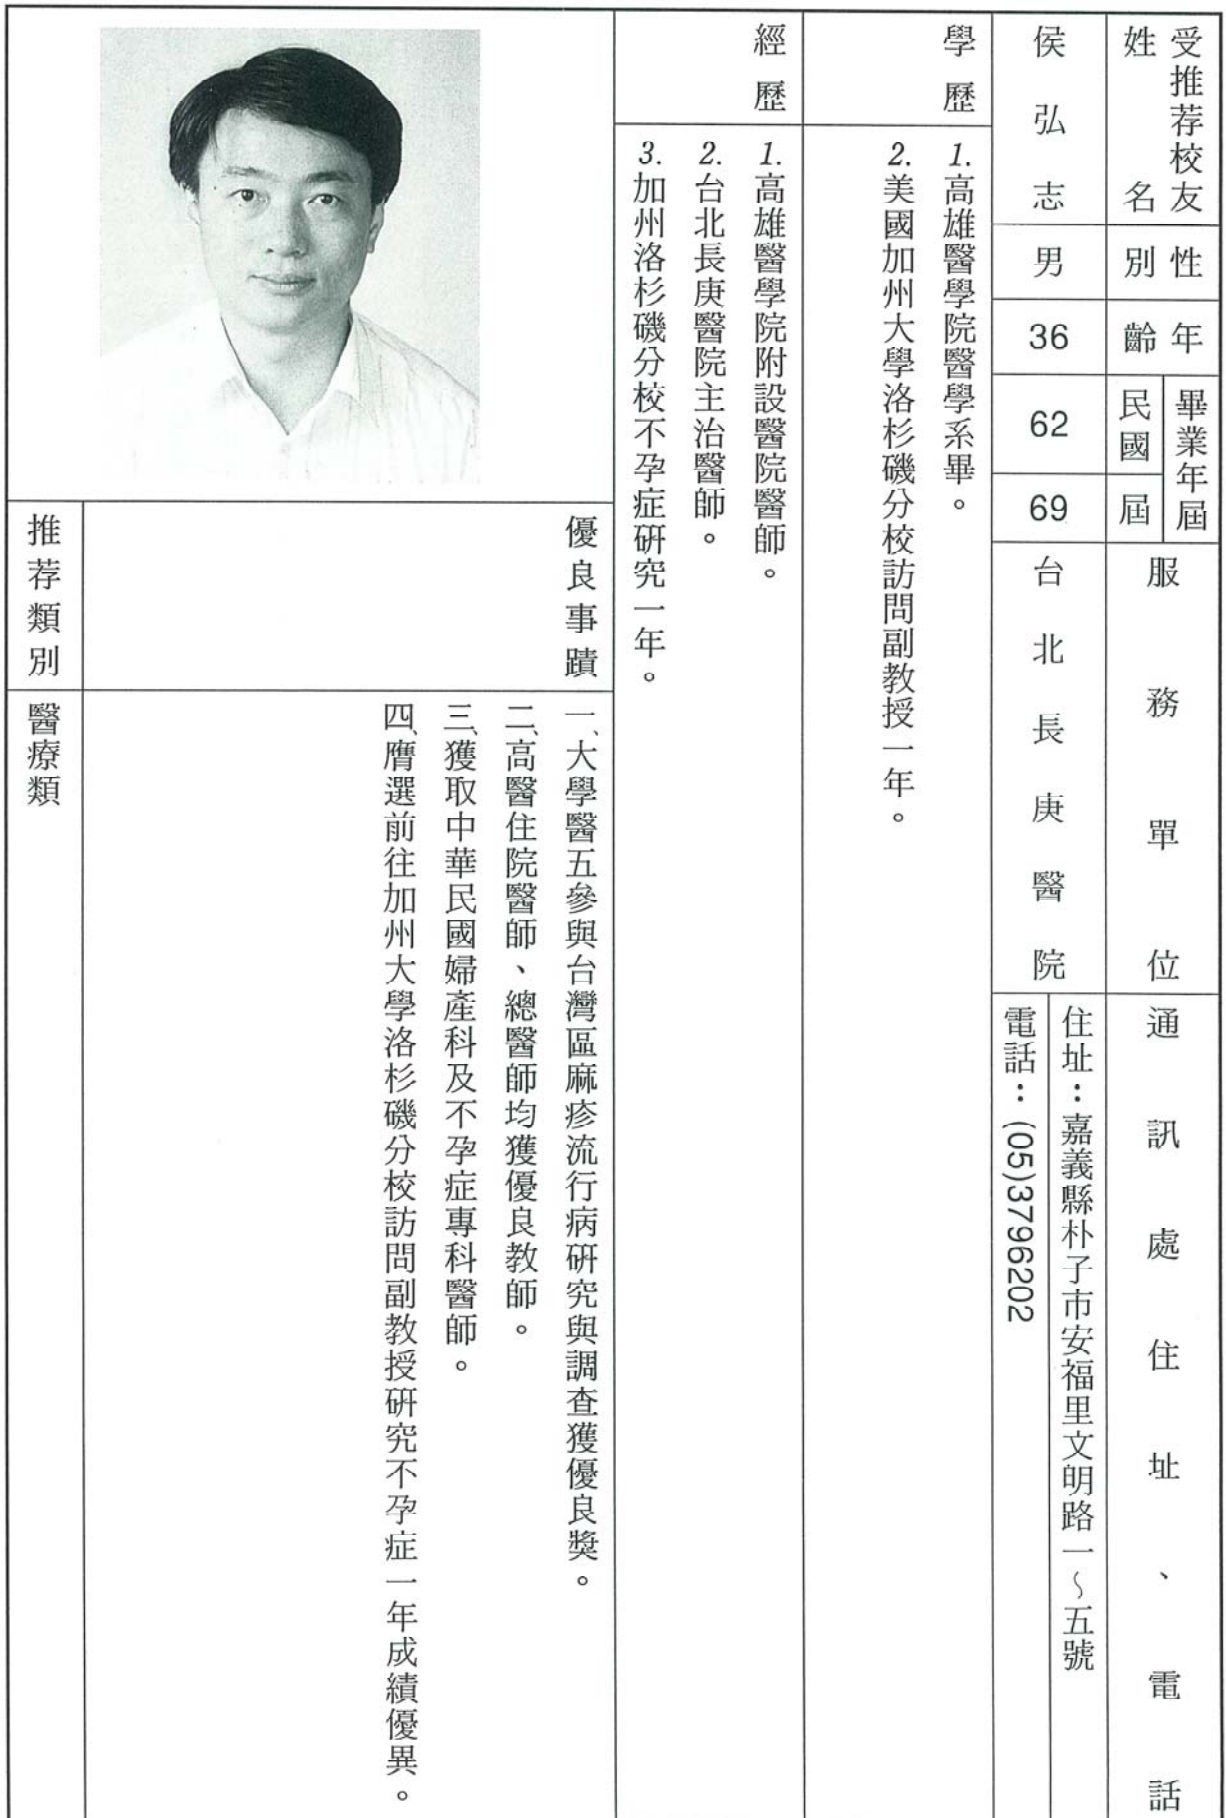 受推荐校友
姓名
性別
年齡
畢業年屆
民國
屆
服務單位
通訊處住址、電話
侯弘志
男
36
62
69
台北長庚醫院
住址：嘉義縣朴子市安福里文明路一～五號
電話：(05)3796202
學歷
1.高雄醫學院醫學系畢。
2.美國加州大學洛杉磯分校訪問副教授一年。
經歷
1.高雄醫學院附設醫院醫師。
2.台北長庚醫院主治醫師。
3.加州洛杉磯分校不孕症研究一年。
優良事蹟
一、大學醫五參與台灣區麻疹流行病研究與調查獲優良獎。
二、高醫住院醫師、總醫師均獲優良教師。
三、獲取中華民國婦產科及不孕症專科醫師。
四、膺選前往加州大學洛杉磯分校訪問副教授研究不孕症一年成績優異。
推荐類別
醫療類